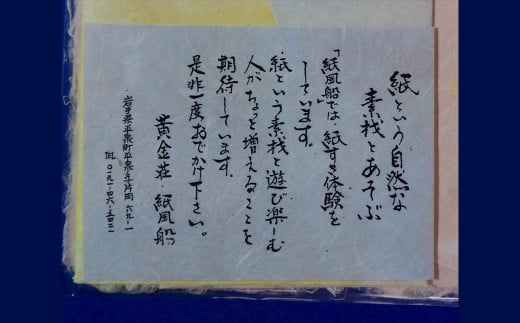 紙という自然な
素材とあそぶ
「紙風船」では、紙すき体験を
しています。
紙という素材と遊び楽しむ
人がちょっと増えることを
期待しています。
是非一度おでかけ下さい。
黄金荘・紙風船
岩手県平泉町平泉字片岡